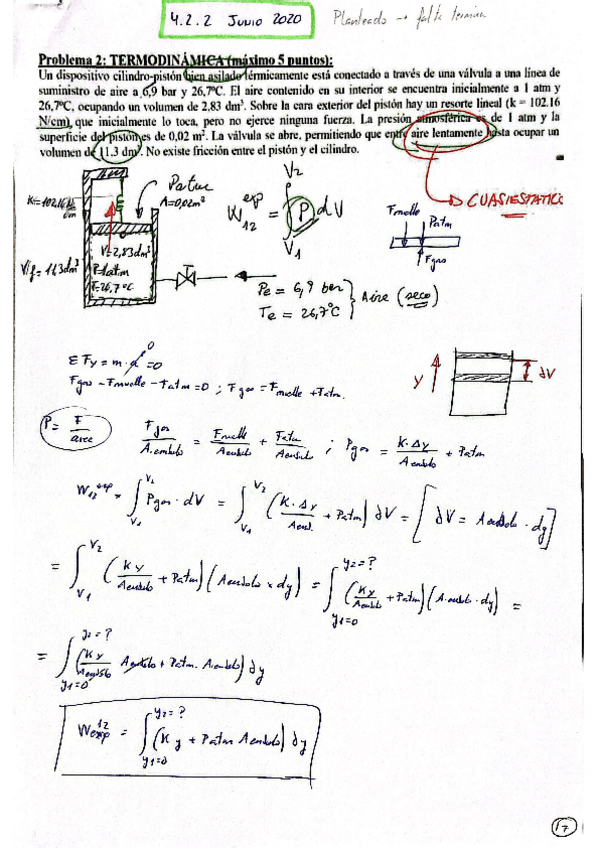 4.2.2 Junio 2020
Planteado → falta terminar
Problema 2: TERMODINÁMICA (máximo 5 puntos):
Un dispositivo cilindro-pistón bien asilado térmicamente está conectado a través de una válvula a una línea de
suministro de aire a 6,9 bar y 26,7ºC. El aire contenido en su interior se encuentra inicialmente a 1 atm y
26,7ºC, ocupando un volumen de 2,83 dm³. Sobre la cara exterior del pistón hay un resorte lineal (k = 102.16
N/cm), que inicialmente lo toca, pero no ejerce ninguna fuerza. La presión atmosférica es de 1 atm y la
superficie del pistón es de 0,02 m². La válvula se abre, permitiendo que entre aire lentamente hasta ocupar un
volumen de 11.3 dm³. No existe fricción entre el pistón y el cilindro.
→ CUASIESTATICO
K=102.16 N/cm
Patm
A=0,02m²
V=2,83dm³
P=1atm
T=26,7ºC
Vf=11,3dm³
W12^exp = ∫V1^V2 P dV
Fmuelle
Patm
Fgas
Pe = 6,9 bar
Te = 26,7ºC
Aire (seco)
ΣFy = m·a = 0
0
Fgas - Fmuelle - Fatm = 0 ; Fgas = Fmuelle + Fatm.
y
dV
P = F/area
Fgas/A.embolo = Fmuelle/Aembolo + Fatm/Aembolo ; Pgas = K·Δy/Aembolo + Patm
W12^exp = ∫V1^V2 Pgas · dV = ∫V1^V2 (K·Δy/Aemb. + Patm) dV = [dV = Aembolo · dy]
= ∫V1^V2 (Ky/Aembolo + Patm)(Aembolo × dy) = ∫y1=0^y2=? (Ky/Aembolo + Patm)(A.embolo · dy) =
= ∫y1=0^y2=? (Ky/Aembolo Aembolo + Patm. Aembolo) dy
Wexp^12 = ∫y1=0^y2=? (Ky + Patm Aembolo) dy
17